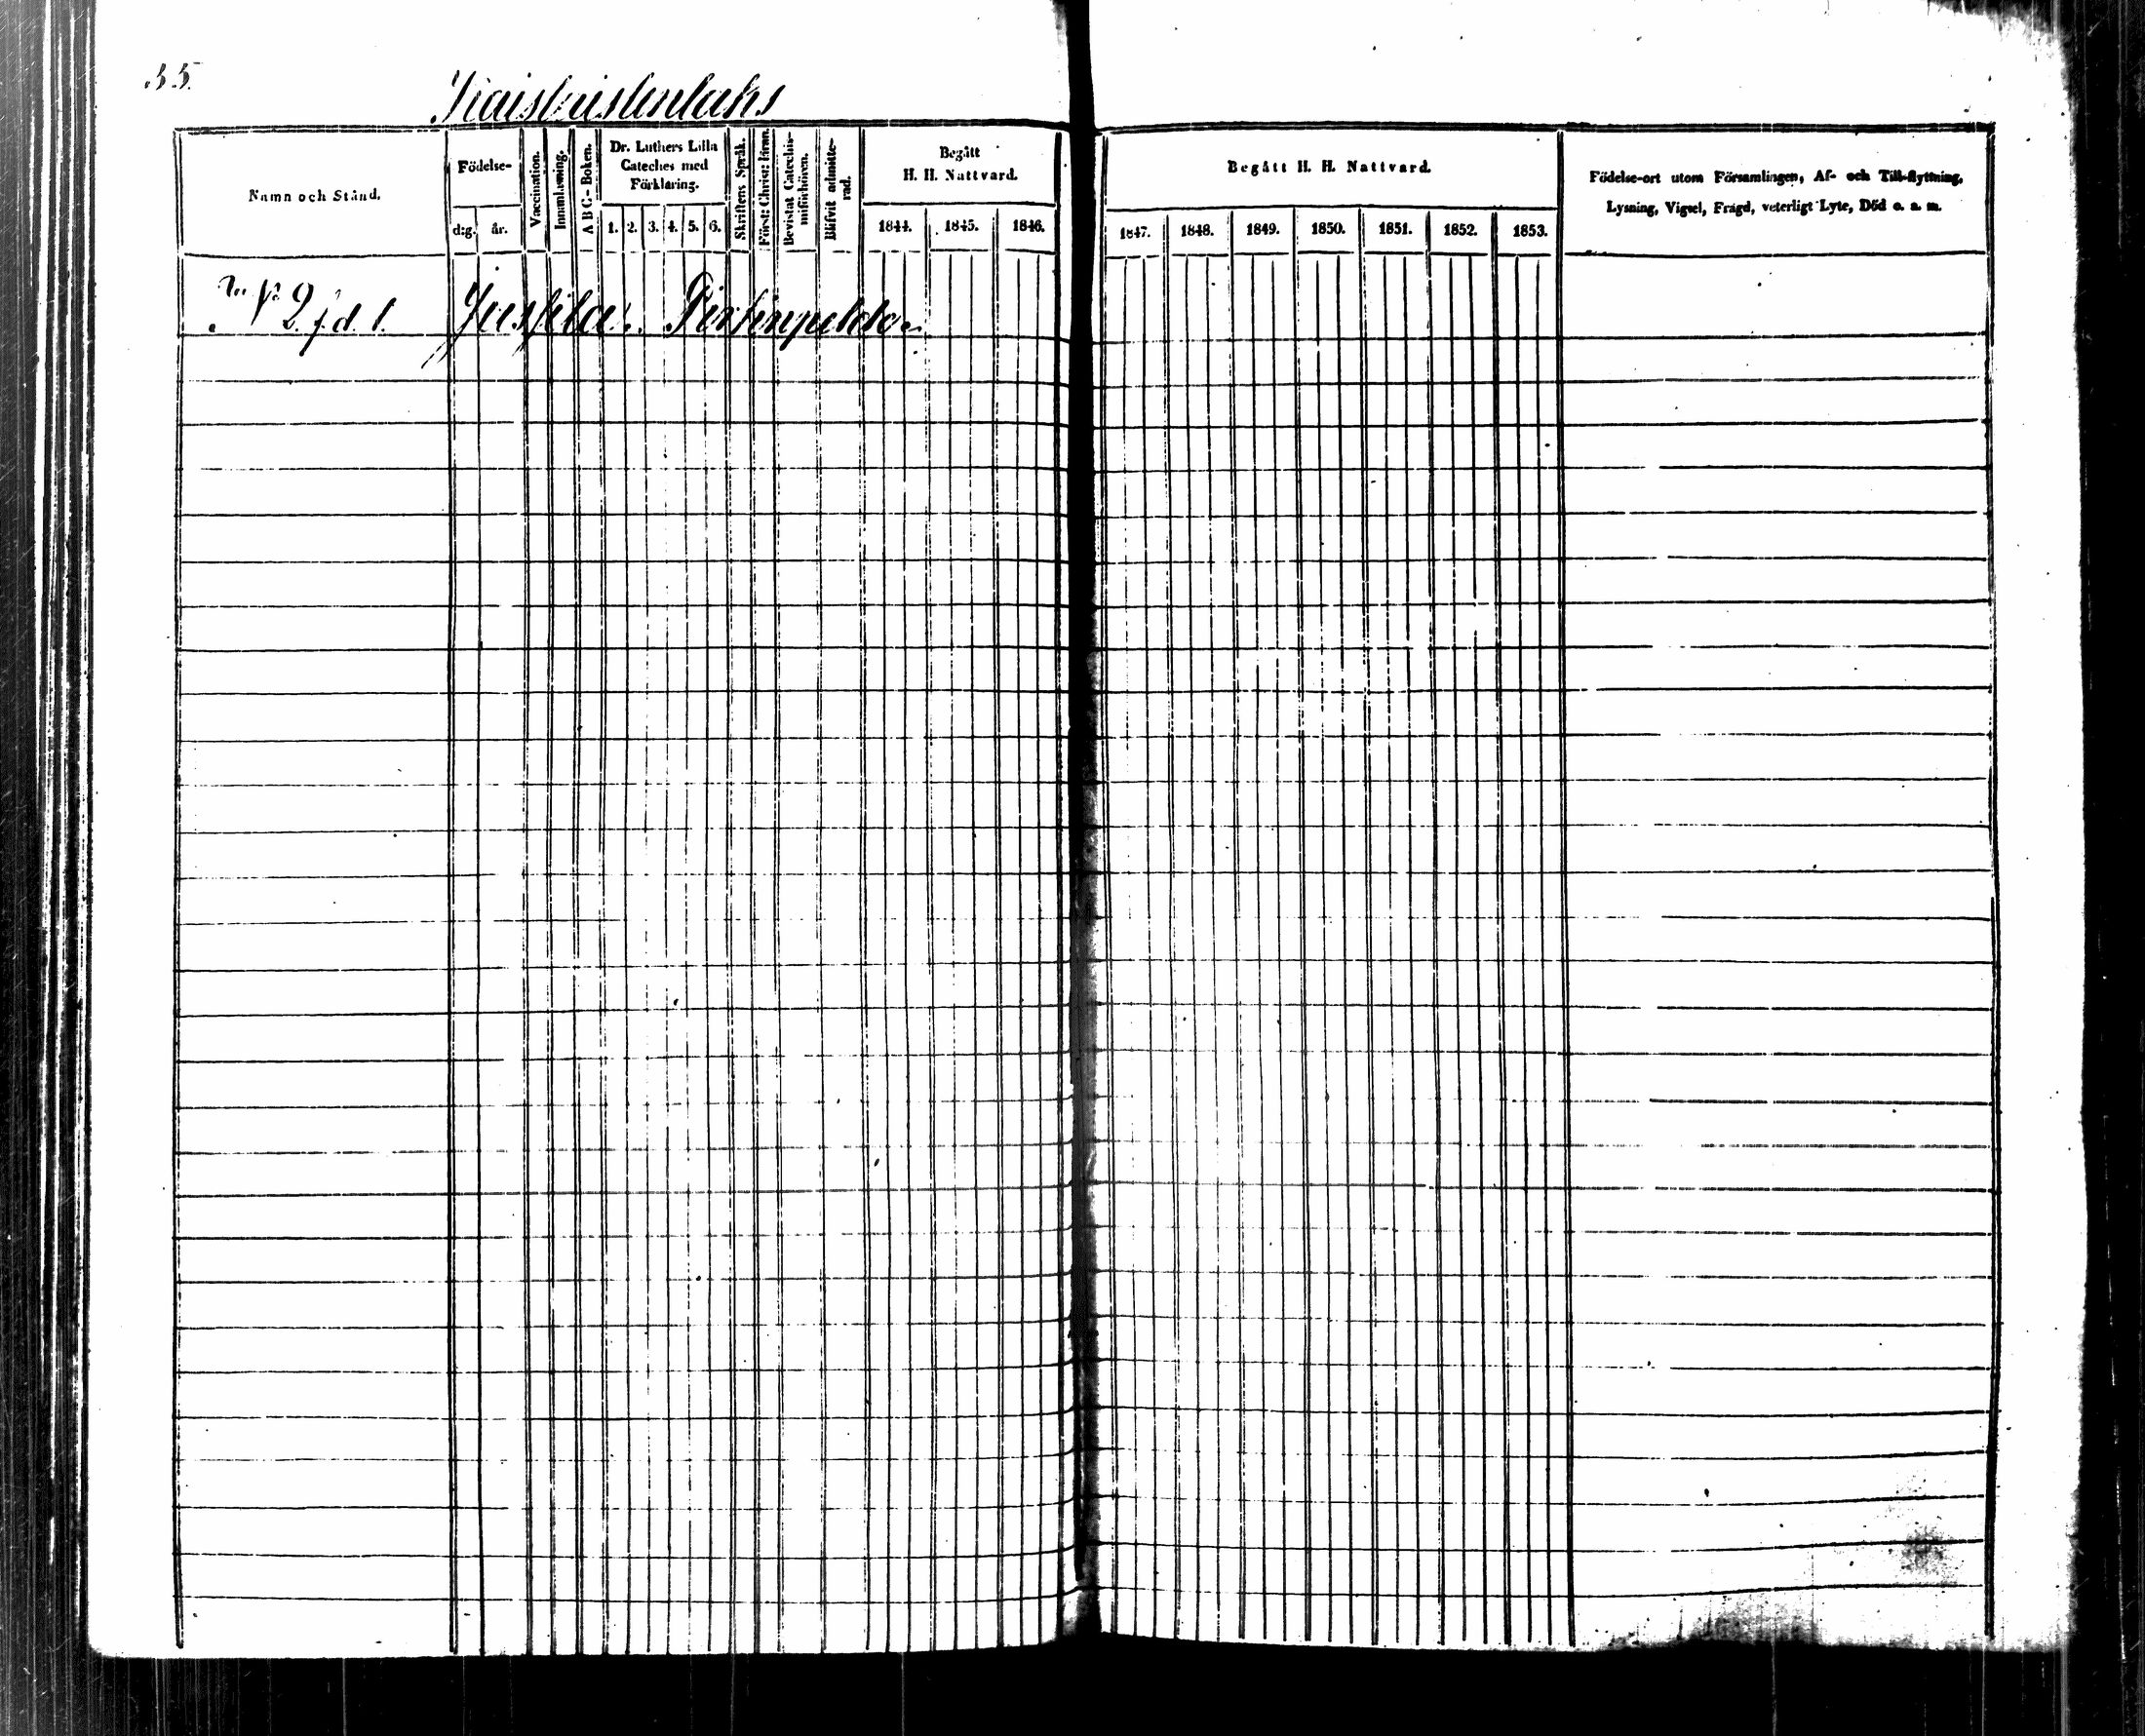 35.
Namn och Stånd.
Födelse-
d:g.
år.
Vaccination.
Innanläsning.
A B C - Boken.
Dr. Luthers Lilla
Cateches med
Förklaring.
1. 2. 3. 4. 5. 6.
Skriftens Språk.
Bevistat Catechis-
misförhören.
Blifvit admitte-
rad.
Begått
H. H. Nattvard.
1844. 1845. 1846.
Begått H. H. Nattvard.
1847. 1848. 1849. 1850. 1851. 1852. 1853.
Födelse-ort utom Församlingen, Af- och Till-flyttning,
Lysning, Vigsel, Frägd, veterligt Lyte, Död o. a. m.
N 2